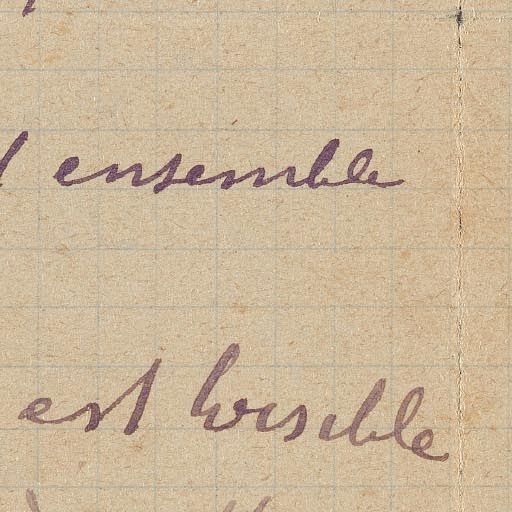 ensemble
est horible